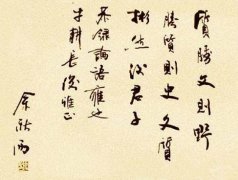 質勝文則野
勝質則史文質
彬然後君子
錄論語雍也
耕長雅正
余秋雨